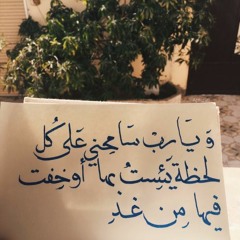 وَيَا رب سَامحِني عَلى كُل
لحظة يَئِستُ بها أو خِفت
فيها مِن غدٍ